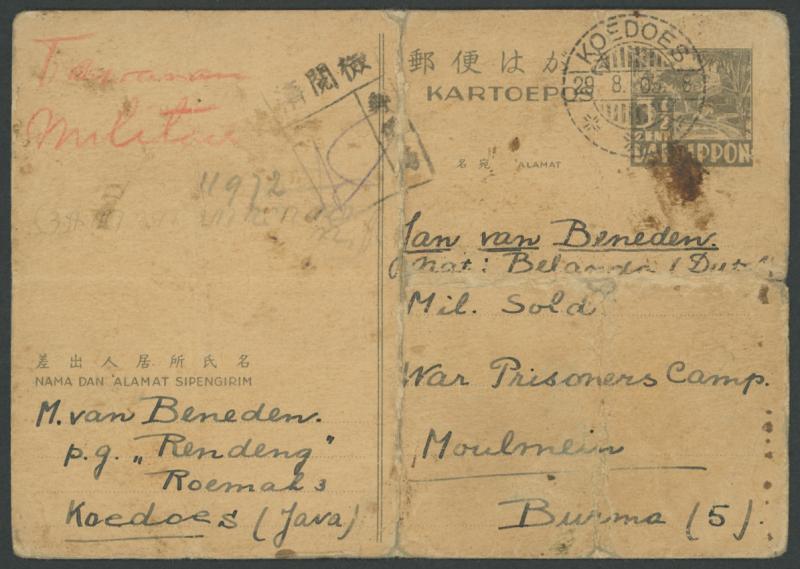 Tawanan
Militair
11972
検閲済
郵便はが
KARTOEPOS
KOEDOES
29 8. 03 8
3½
ZENT
DAI NIPPON
名宛 ALAMAT
Jan van Beneden.
(Nat: Belanda / Dutch
Mil. Sold
War Prisoners Camp.
Moulmein
Burma (5).
差出人居所氏名
NAMA DAN ALAMAT SIPENGIRIM
M. van Beneden.
p.g. „Rendeng"
Roemah 3
Koedoes (Java)